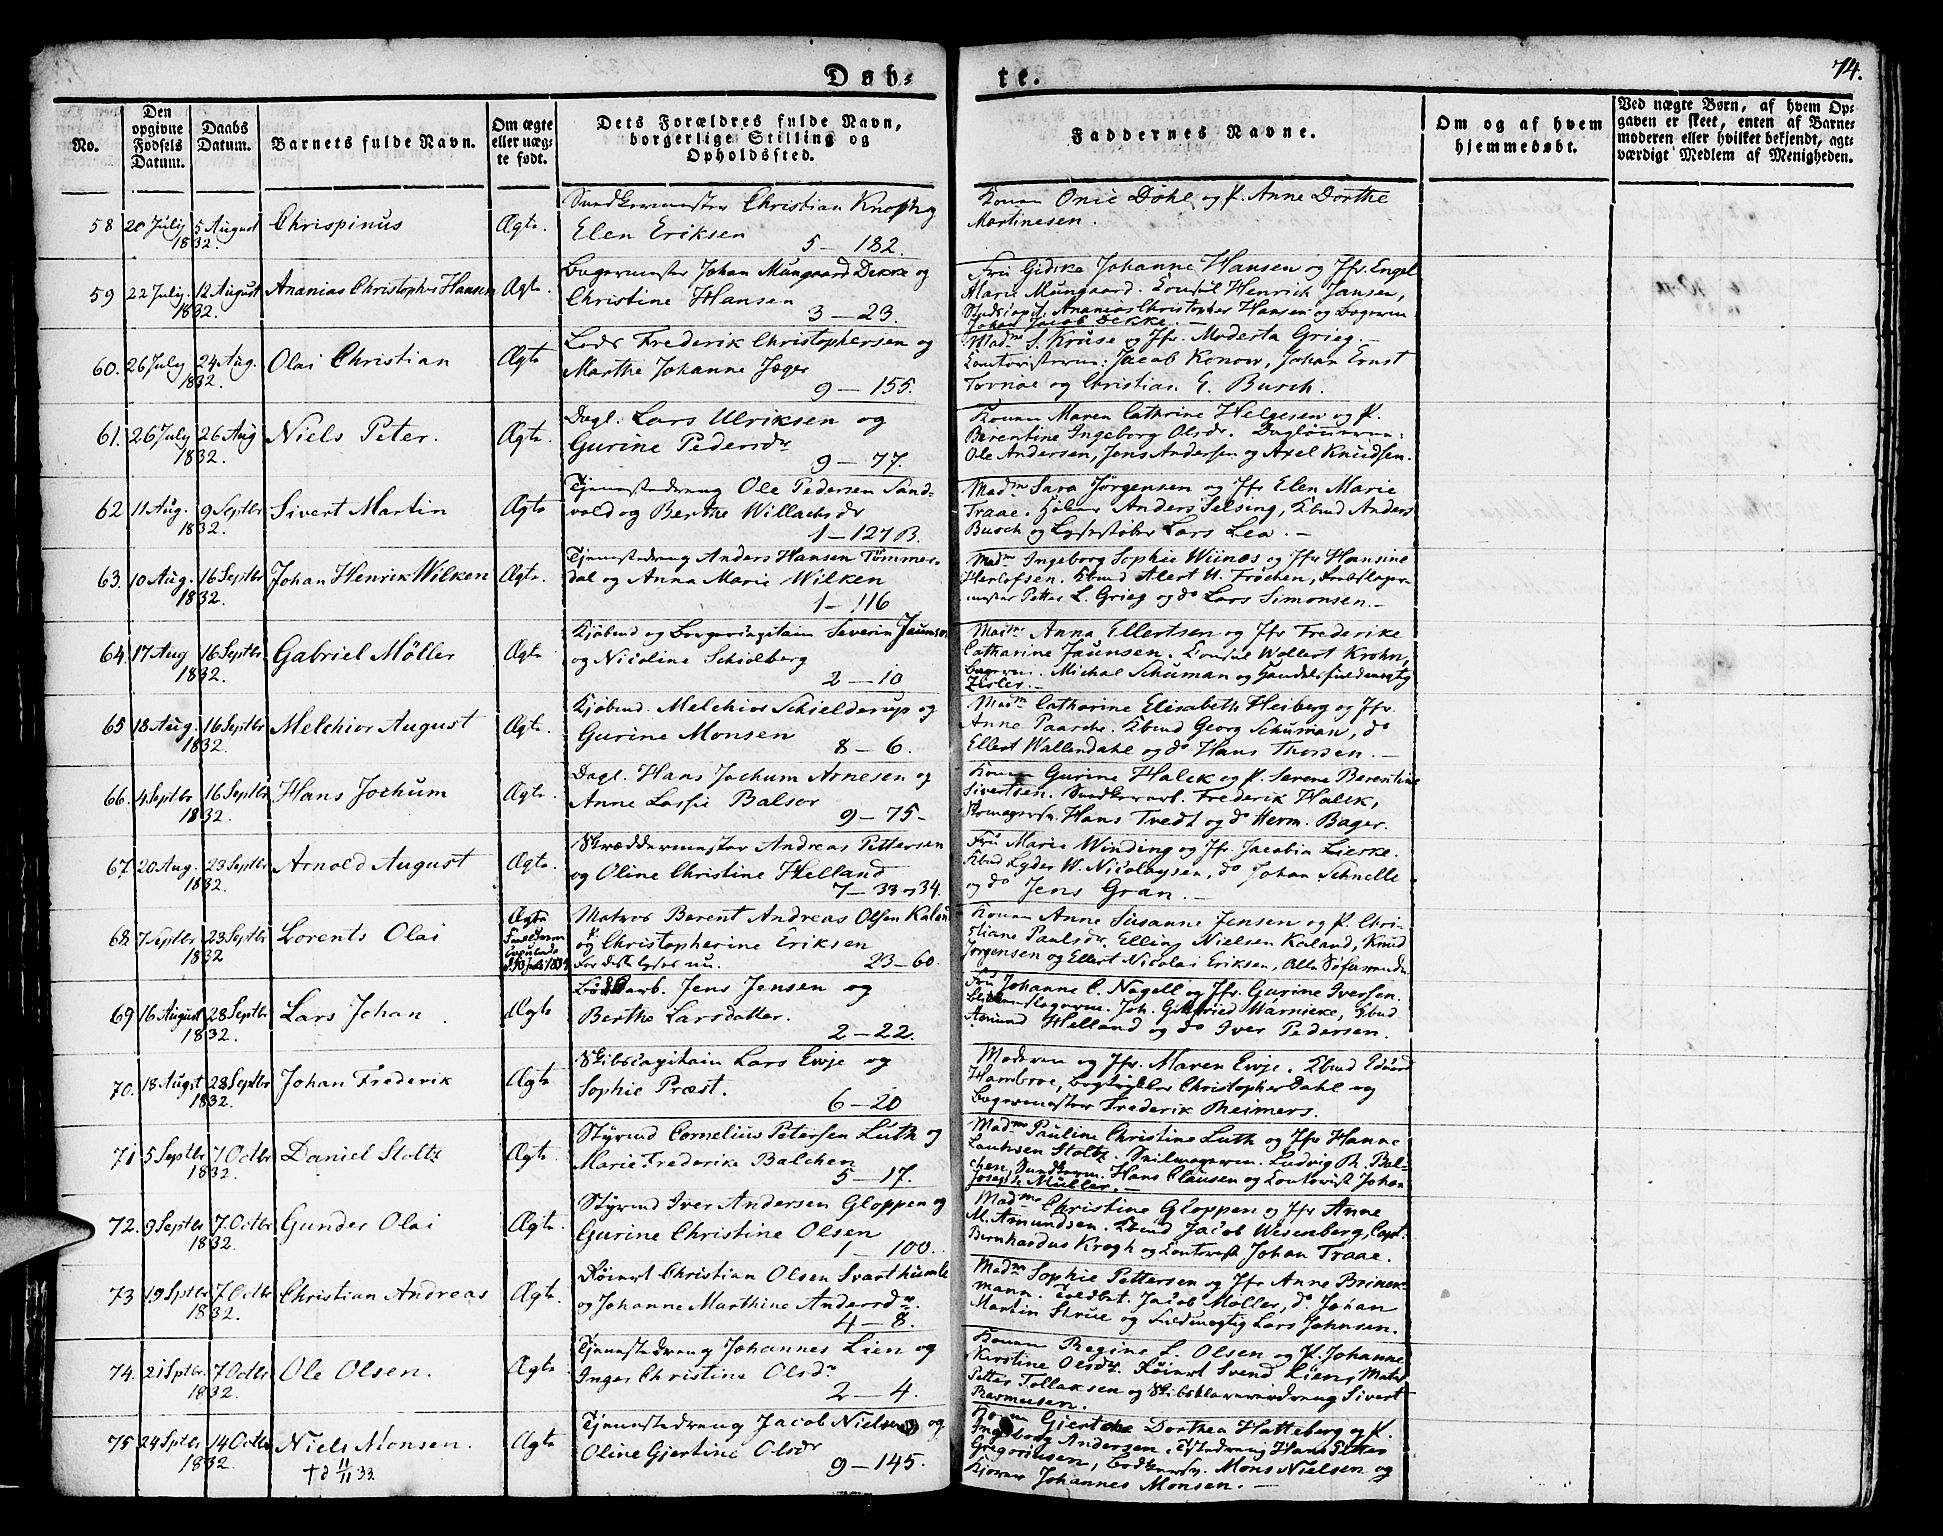 Døb-
te.
74.
No.
Den
opgivne
Fødsels
Datum.
Daabs
Datum.
Barnets fulde Navn.
Om ægte
eller uæg-
te født.
Dets Forældres fulde Navn,
borgerlige Stilling og
Opholdssted.
Faddernes Navne.
Om og af hvem
hjemmedøbt.
Ved uægte Børn, af hvem Op-
gaven er skeet, enten af Barne-
moderen eller hvilket bekjendt, agt-
værdigt Medlem af Menigheden.
58 20 July 5 August 1832. Chrispinus Ægte.
Christian Knoph og
Elen Eriksen
5 - 182.
Konen Onie Dahl og P. Anne Dorthe
Martinesen.
59 22 July. 12 August 1832. Ananias Christopher Hansen Ægte.
Bagermester Johan Mungaard Dekke og
Christine Hansen
3 - 23.
Fru Gidske Johanne Hansen og Jfr. Engel
Marie Mungaard. Consul Henrich Jansen,
Ananias Christopher Hansen og Bagersv.
Johan Jacob Dekke. -
60. 26 July 24 Aug. 1832. Olai Christian Ægte
Lods Frederik Christophersen og
Marthe Johanne Jæger
9 - 155.
Madme S. Kruse og Jfr. Moderta Grieg. -
Contoristerne: Jacob Konow, Johan Ernst
Tornøe og Christian G. Busch.
61. 26 July 26 Aug 1832. Niels Peter. Ægte.
Dagl. Lars Ulriksen og
Gurine Pedersdr
9 - 77.
Konen Maren Cathrine Helgesen og P.
Berentine Ingeborg Olsdr. Dagl
Ole Andersen, Jens Andersen og Axel Knudsen.
62 11 Aug. 9 Septbr 1832. Sivert Martin Ægte
Tjenestedreng Ole Pedersen Sand-
vold og Berthe Willachsdr
1 - 127 B.
Madme Sara Jörgensen og Jfr Elen Marie
Traae. Anders Selsing, Kbmd Anders
Busch og Lysestøber Lars Lea. -
63. 10 Aug. 16 Septbr 1832. Johan Henrik Wilken Ægte.
Tjenestedreng Anders Hansen Tømmer-
dal og Anna Marie Wilken
1 - 116
Madme Ingeborg Sophie Wiinæs og Jfr Hansine
Herlofsen. Kbmd Alert H. Fröchen,
mester Petter L. Grieg og do Lars Simonsen. -
64. 17 Aug 16 Septbr 1832. Gabriel Möller Ægte.
Kjøbmd og Borgercapitain Severin Jaunsen
og Nicoline Schiolberg
2 - 10
Madme Anna Ellertsen og Jfr Frederike
Catharine Jaunsen. Consul Wollert Krohn,
Michal Schuman og Handelsfuldmægtig
65 18 Aug. 16 Septbr 1832. Melchior August Ægte.
Kjøbmd. Melchior Schielderup og
Gurine Monsen
8 - 6.
Madme Catharine Elisabeth Heiberg og Jfr.
Anne Paasche. Kbmd Georg Schuman, do
Ellert Wallendahl og do Hans Thorsen. -
66. 4 Septbr 16 Septbr 1832. Hans Jochum Ægte.
Dagl. Hans Jochum Arnesen og
Anne Lassie Balsor
9 - 75 -
Konen Gurine Halek og P. Serene Berentine
Sivertsen. Frederik Halek,
Hans Tvedt og do Herm. Bager.
67. 20 Aug. 23 Septbr 1832. Arnold August Ægte.
Skræddermester Andreas Pettersen
og Oline Christine Helland
7 - 33 og 34.
Fru Marie Winding og Jfr. Jacobia Lierke.
Kbmd Lyder W. Nicolaysen, do Johan Schnelle
og do Jens Gran. -
68. 7 Septbr 23 Septbr 1832 Lorents Olai Ægte
Matros Berent Andreas Olsen Kaland
og P. Christopherine Eriksen
23 - 60.
Konen Anne Susanne Jensen og P. Chri-
stiane Paulsdr. Elling Nielsen Kaland, Knud
Jørgensen og Ellert Nicolai Eriksen, Alle Søfarende
69 16 August 28 Septbr 1832. Lars Johan Ægte
Bødkerarb. Jens Jensen og
Berthe Larsdatter.
2 - 22.
Fru Johanne C. Nagell og Jfr. Gurine Iversen.
Joh. Gottfried Warnicke, Kbmd
Amund Helland og do Iver Pedersen.
70. 18 Augst 28 Septbr 1832. Johan Frederik Ægte
Skibscapitain Lars Ewje og
Sophie Præst.
6 - 20
Moderen og Jfr. Maren Ewje. Kbmd Eduard
Hambroe, Bogtrykker Christopher Dahl og
Bagermester Frederik Reimers.
71 5 Septbr 7 Octbr 1832. Daniel Stoltz Ægte
Styrmd Cornelius Petersen Luth og
Marie Frederike Balchen
5 - 17.
Madme Pauline Christine Luth og Jfr Hanne
Lauhsen Stoltz. Seilmagersv. Ludvig Ph. Bal-
chen, Hans Clausen og Contorist Johan
Joseph Müller. -
72. 9 Septbr 7. Octbr 1832. Gunder Olai Ægte.
Styrmd Iver Andersen Gloppen og
Gurine Christine Olsen
1 - 100.
Madme Christine Gloppen og Jfr Anne
M. Amundsen. Kbmd Jacob Wesenberg, Capt.
Bernhardus Krogh og Contorist Johan Traae.
73 19 Sptbr 7 Octbr 1832. Christian Andreas Ægte.
Röiert Christian Olsen Svarthumle
og Johanne Marthine Andersdr.
4 - 8.
Madme Sophie Pettersen og Jfr Anne Brinch-
mann. Toldbet. Jacob Møller, do Johan
Martin Strue og Fuldmægtig Lars Johnsen.
74. 21 Sptbr. 7 Octbr 1832. Ole Olsen. Ægte
Tjenestedreng Johannes Lien og
Inger Christine Olsdr
2 - 4.
Konen Regine L. Olsen og P. Johanne
Kirstine Olsdr. Röiert Svend Lien, Matr
Petter Tollaksen og Skibstømmerdreng Sivert
Rasmusen.
75 24 Sptbr 14 Octbr 1832. Niels Monsen. Ægte
†d 11/11 33.
Tjenestedreng Jacob Nielsen og
Oline Gjertine Olsdr
9 - 145.
Konen Giertche Dorthea Hatteberg og P.
Ingeborg Andersen. Tjstedreng Hans Petter
Gregoriusen, Bødkersv. Mons Nielsen og
Johannes Monsen. -